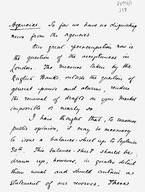 Agencies. So far we have no disquieting
news from the agencies
Our great preoccupation now is
the question of the acceptances in
London. The measures taken by the
English Banks outside the question of
general panic and alarm, renders
the renewal of drafts on your market
impossible or nearly so.
I have thought that, to reassure
public opinion, it may be necessary
to issue a balance-sheet up to Septem-
ber. This balance-sheet should be
drawn up, however, in greater detail
than usual and should contain a
statement of our reserves, Thanks